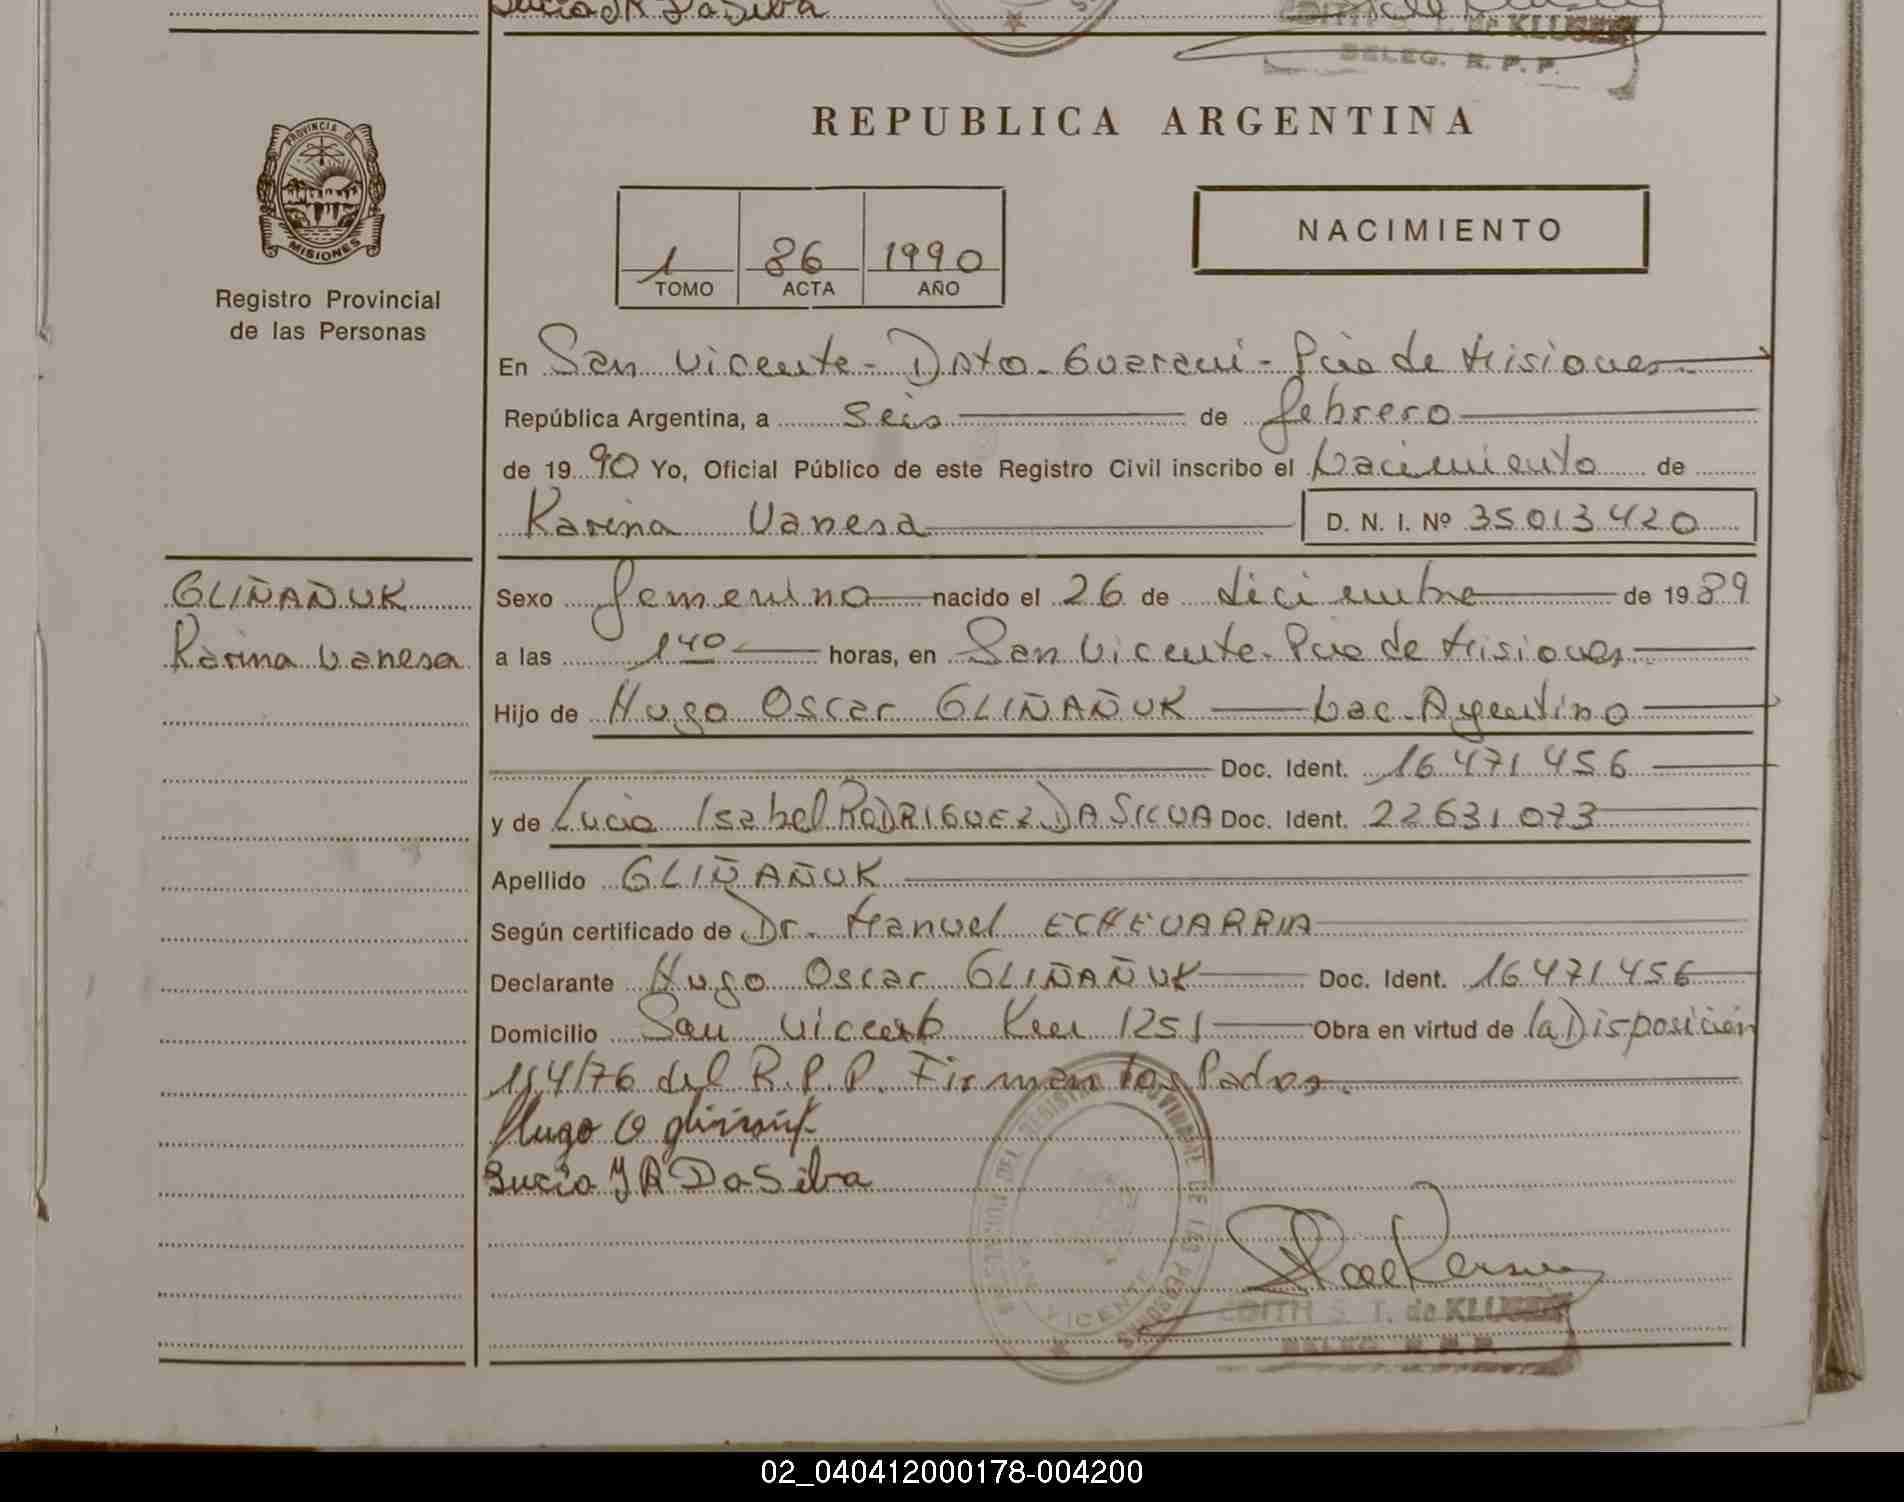 Lucia I R Da Silva
EDITH S. T. de KLUGER
DELEG. R. P. P.
PROVINCIA DE
MISIONES
Registro Provincial
de las Personas
REPUBLICA ARGENTINA
1 86 1990
TOMO ACTA AÑO
NACIMIENTO
En San Vicente - Dpto. Guaraní - Pcia de Misiones
República Argentina, a seis de febrero
de 1990 Yo, Oficial Público de este Registro Civil inscribo el Nacimiento de
Karina Vanesa D. N. I. Nº 35013420
GLIÑAÑUK
Karina Vanesa
Sexo femenino nacido el 26 de diciembre de 1989
a las 1 40 horas, en San Vicente. Pcia de Misiones
Hijo de Hugo Oscar GLIÑAÑUK Nac. Argentino
Doc. Ident. 16 471 456
y de Lucia Isabel RODRIGUEZ DA SILVA Doc. Ident. 22631073
Apellido GLIÑAÑUK
Según certificado de Dr. Manuel ECHEVARRIA
Declarante Hugo Oscar GLIÑAÑUK Doc. Ident. 16471456
Domicilio San Vicente Km 1251 Obra en virtud de la Disposición
114/76 del R.P.P. Firman los Padres.
Hugo O
Lucia I R Da Silva
VICENTE
EDITH S. T. de KLUGER
DELEG. R. P. P.
02_040412000178-004200